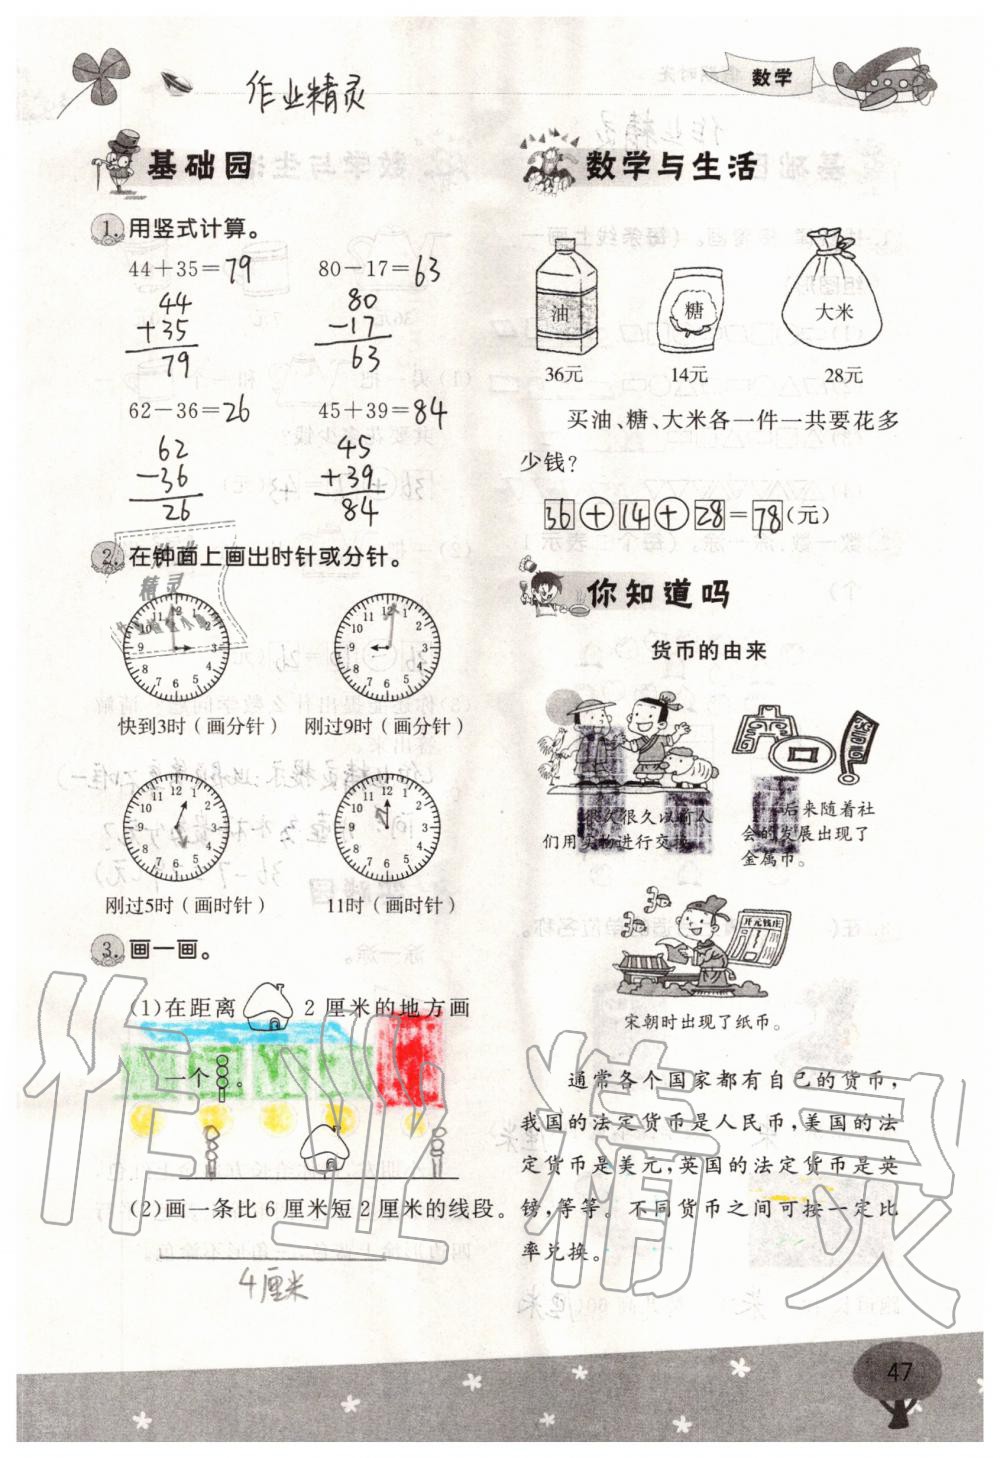 数学
作业精灵
基础园
1.用竖式计算。
44+35=79
80-17=63
44
+35
79
80
-17
63
62-36=26
45+39=84
62
-36
26
45
+39
84
2.在钟面上画出时针或分针。
快到3时(画分针)
刚过9时(画分针)
刚过5时(画时针)
11时(画时针)
3.画一画。
(1)在距离 2厘米的地方画
一个 。
(2)画一条比6厘米短2厘米的线段。
4厘米
数学与生活
油
糖
大米
36元
14元
28元
买油、糖、大米各一件一共要花多
少钱?
36+14+28=78(元)
你知道吗
货币的由来
很久很久以前人
们用实物进行交换。
后来随着社
会的发展出现了
金属币。
开元钱庄
宋朝时出现了纸币。
通常各个国家都有自己的货币,
我国的法定货币是人民币,美国的法
定货币是美元,英国的法定货币是英
镑,等等。不同货币之间可按一定比
率兑换。
作业精灵
47